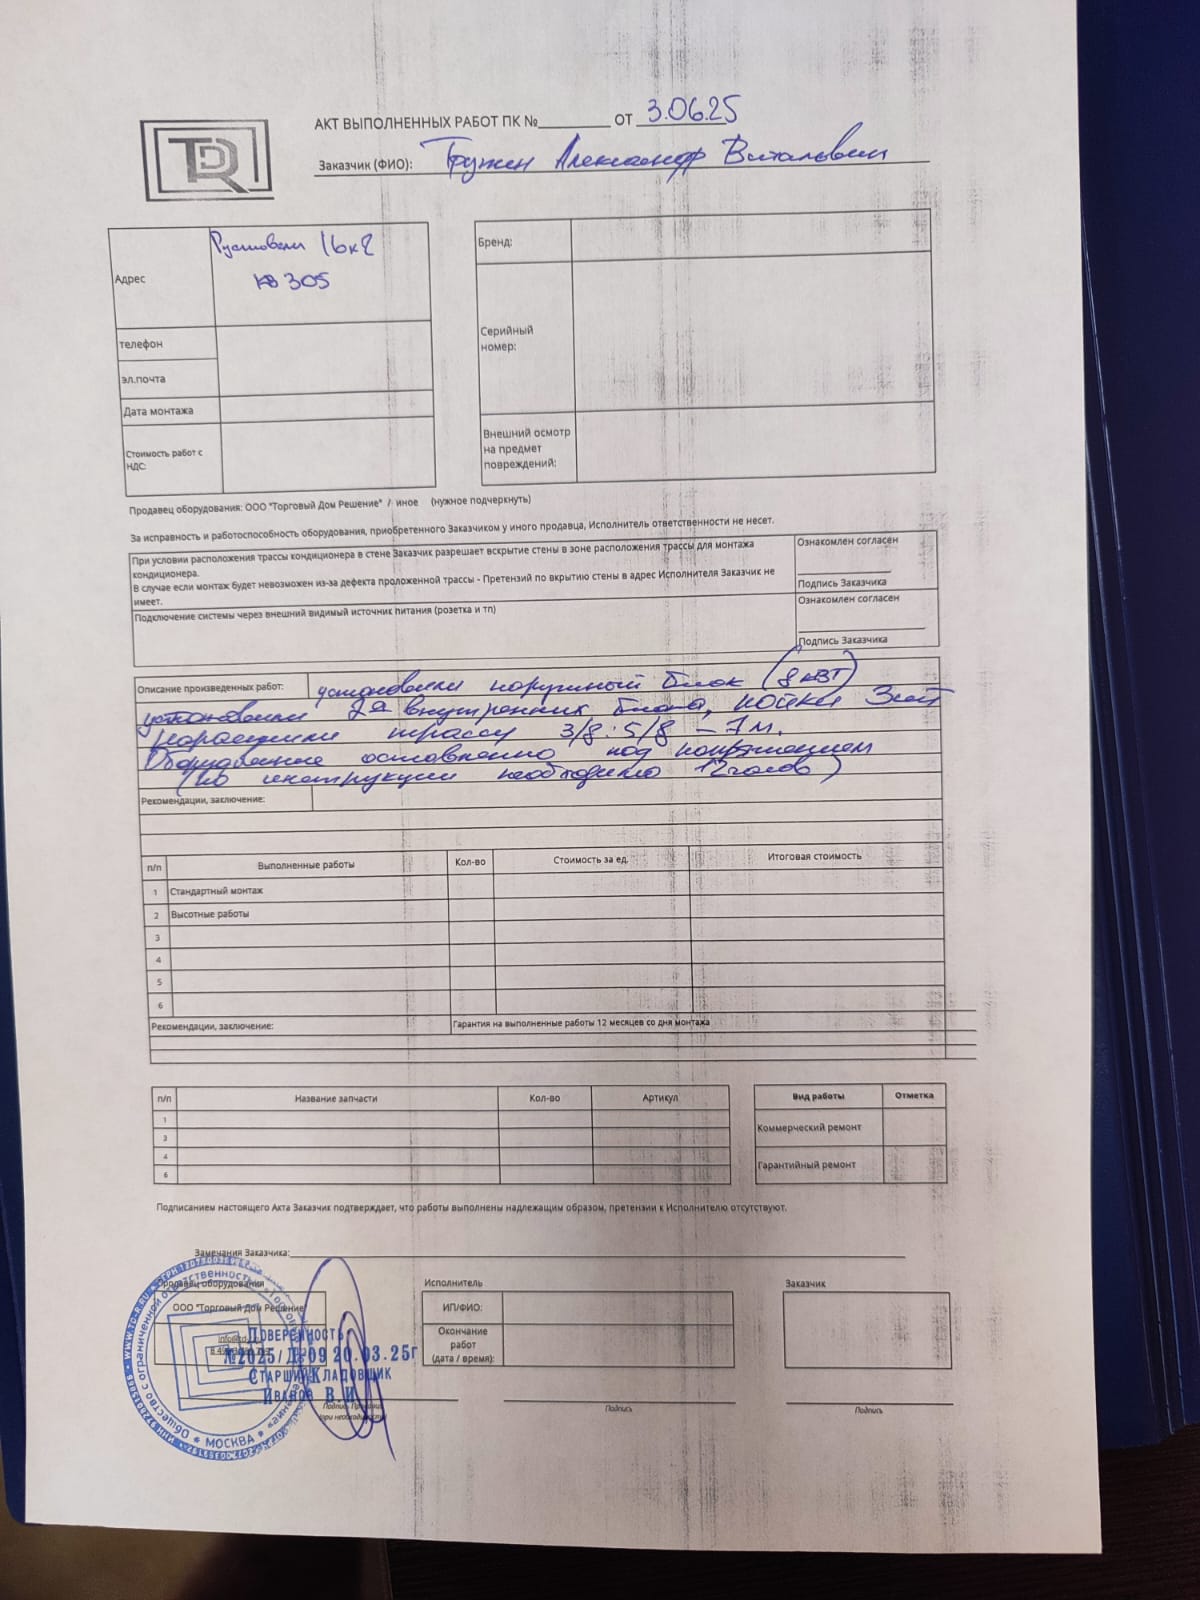 TDR
АКТ ВЫПОЛНЕННЫХ РАБОТ ПК №________ ОТ 3.06.25
Заказчик (ФИО): Гружен Александр Витальевич
Адрес
Руставели 16к2
кв 305
телефон
эл.почта
Дата монтажа
Стоимость работ с НДС:
Бренд:
Серийный номер:
Внешний осмотр на предмет повреждений:
Продавец оборудования: ООО "Торговый Дом Решение" / иное (нужное подчеркнуть)
За исправность и работоспособность оборудования, приобретенного Заказчиком у иного продавца, Исполнитель ответственности не несет.
При условии расположения трассы кондиционера в стене Заказчик разрешает вскрытие стены в зоне расположения трассы для монтажа
кондиционера.
В случае если монтаж будет невозможен из-за дефекта проложенной трассы - Претензий по вкрытию стены в адрес Исполнителя Заказчик не
имеет.
Ознакомлен согласен
Подпись Заказчика
Подключение системы через внешний видимый источник питания (розетка и тп)
Ознакомлен согласен
Подпись Заказчика
Описание произведенных работ: установили наружный блок (8 кВТ)
установили 2а внутренних блока,
нарастили трассу 3/8:5/8 – 7м.
Оборудование оставленно под напряжением
(по инструкции необходимо 12 часов)
Рекомендации, заключение:
п/п Выполненные работы Кол-во Стоимость за ед. Итоговая стоимость
1 Стандартный монтаж
2 Высотные работы
3
4
5
6
Рекомендации, заключение: Гарантия на выполненные работы 12 месяцев со дня монтажа
п/п Название запчасти Кол-во Артикул
1
2
4
6
Вид работы Отметка
Коммерческий ремонт
Гарантийный ремонт
Подписанием настоящего Акта Заказчик подтверждает, что работы выполнены надлежащим образом, претензии к Исполнителю отсутствуют.
Замечания Заказчика:
Продавец оборудования
ООО "Торговый Дом Решение"
Доверенность
№2025/Д-09 20.03.25г
Старший Кладовщик
Иванов В.И.
Общество с ограниченной ответственностью
МОСКВА
Исполнитель
ИП/ФИО:
Окончание работ (дата / время):
Подпись
Заказчик
Подпись